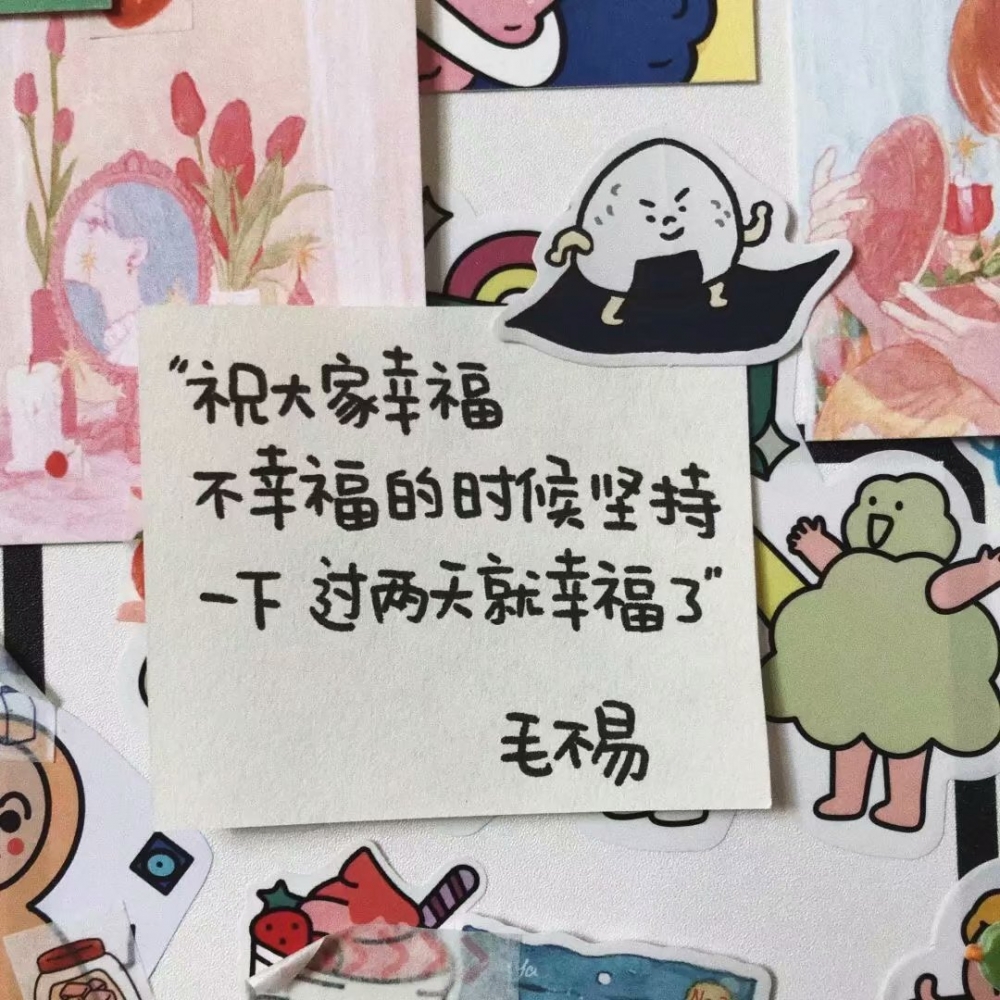 “祝大家幸福
不幸福的时候坚持
一下 过两天就幸福了”
毛不易
Ya